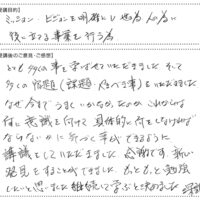 受講目的】
ミッション・ビジョンを明確にし 世の為 人の為に
役に立つ事業を行う為
受講後のご意見・ご感想】
とても多くの事を学ばせていただきました そして
多くの宿題（課題・やるべき事）をいただきました
なぜ今までうまくいかなかったのか これからは
何に意識を向けて 具体的に何をしなければ
ならないかに 行動し 達成できるように
講義をしていただきました 感謝です 新しい
発見をすることができました もっともっと勉強
したいと思いました 継続して学ぶと決めました